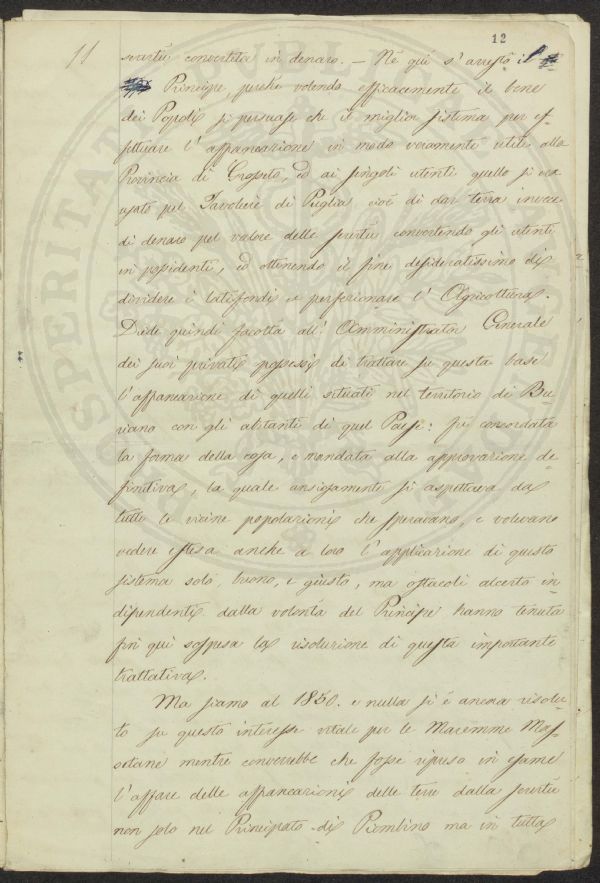 12
11
servitù convertita in denaro. — Nè quì s'arrestò il
Principe, perchè volendo efficacemente il bene
dei Popoli si persuase che il miglior sistema per ef=
fettuare l'affrancazione in modo veramente utile alla
Provincia di Grosseto, ed ai singoli utenti quello si era
usato pel Tavoliere di Puglia cioè di dar terra invece
di denaro pel valore delle servitù convertendo gli utenti
in possidenti, ed ottenendo il fine desideratissimo di
dividere i latifondi e perfezionare l'Agricoltura.
Diede quindi facoltà all'Amministrator Generale
dei suoi privati possessi di trattare su questa base
l'affrancazione di quelli situati nel territorio di Bu
riano con gli abitanti di quel Paese: fu concordata
la forma della cosa, e mandata alla approvazione de=
finitiva, la quale ansiosamente si aspettava da
tutte le vicine popolazioni che speravano, e volevano
vedere estesa anche a loro l'applicazione di questo
sistema solo, buono, e giusto, ma ostacoli alcerto in=
dipendenti dalla volontà del Principe hanno tenuta
fin quì sospesa la risoluzione di questa importante
trattativa.
Ma siamo al 1850. e nulla si è ancora risolu=
to su questo interesse vitale per le Maremme Mas=
setane mentre converrebbe che fosse ripreso in esame
l'affare delle affrancazioni delle terre dalla servitù
non solo nel Principato di Piombino ma in tutta
PROSPERITATI PUBLICAE